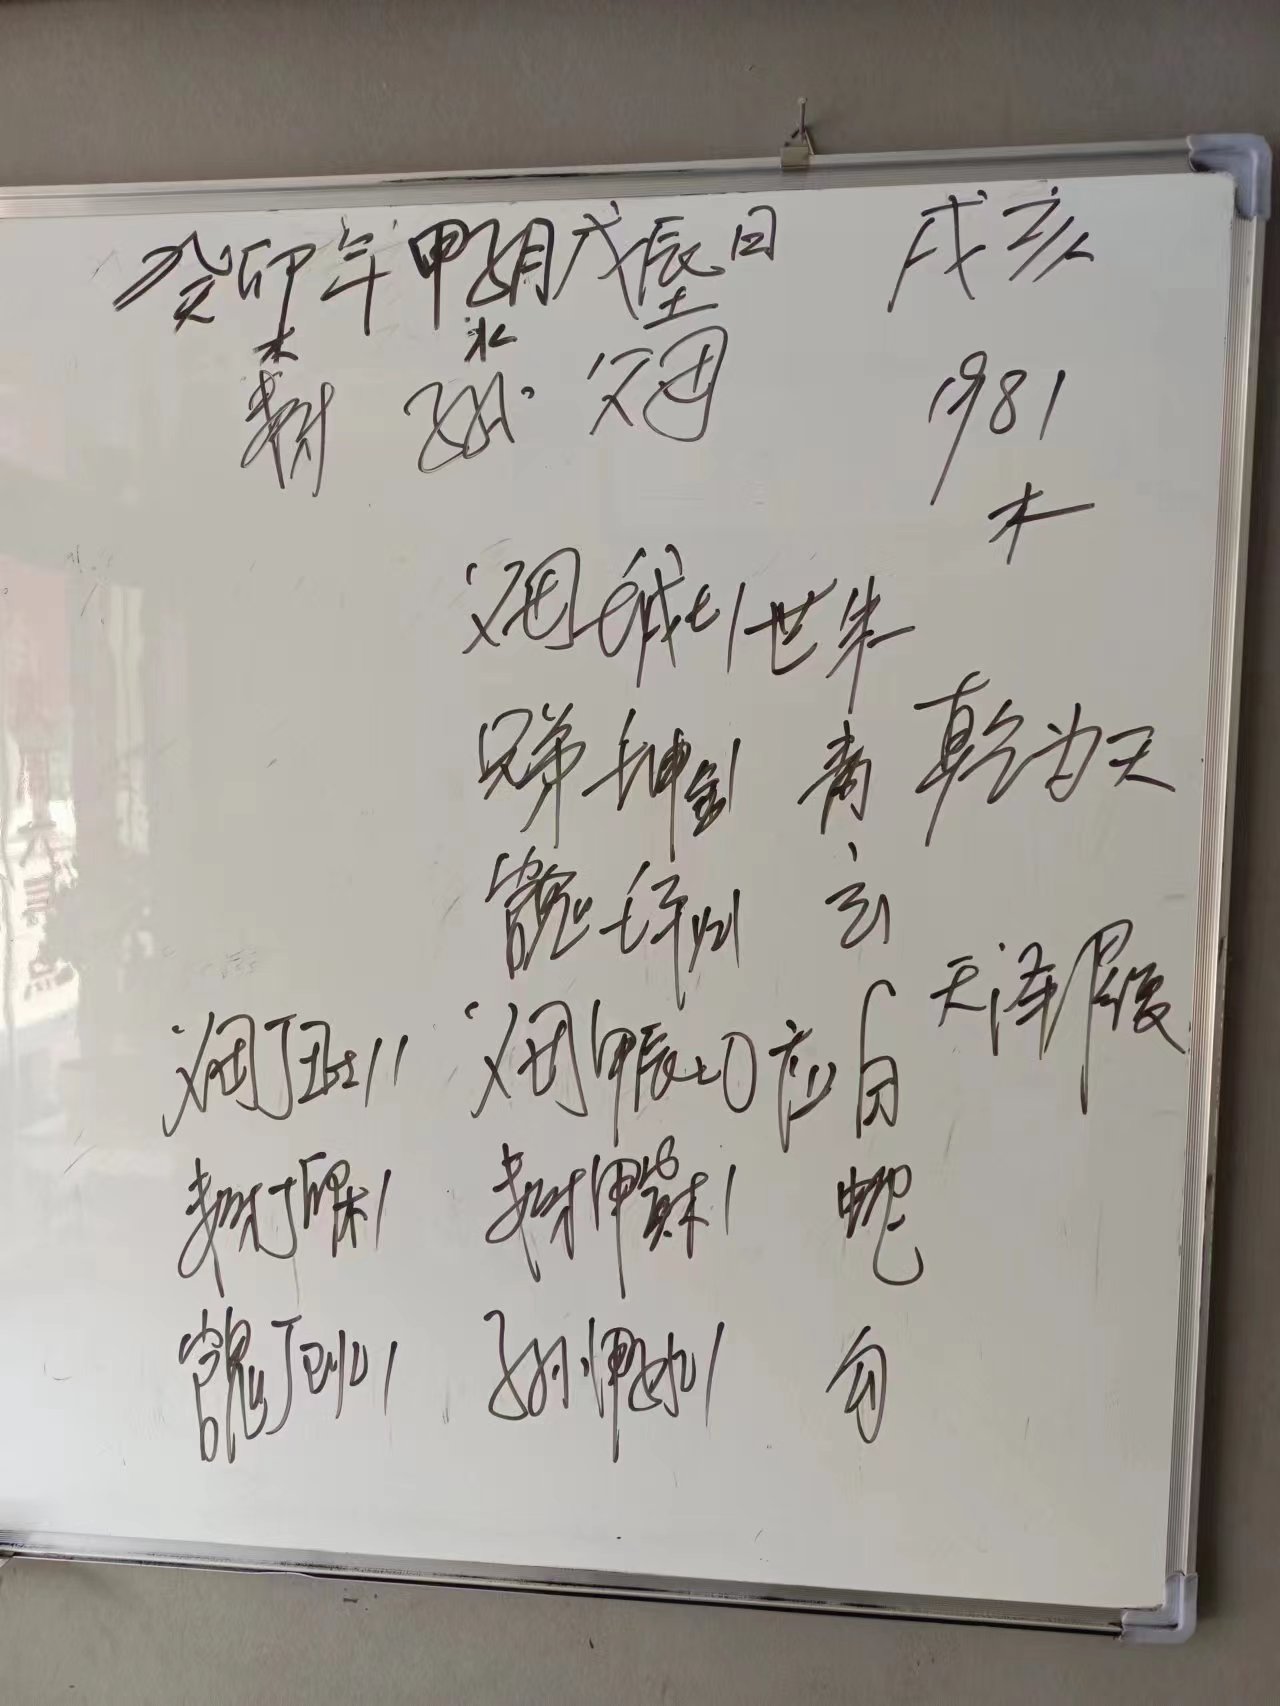 癸卯年甲子月戊辰日 戌亥
木 水 土
妻财 子孙 父母 1981
木
父母壬戌土 世 朱
兄弟壬申金 青 乾为天
官鬼壬午火 玄
父母丁丑土 父母甲辰土 应 白 天泽履
妻财丁卯木 妻财甲寅木 蛇
官鬼丁巳火 子孙甲子水 勾